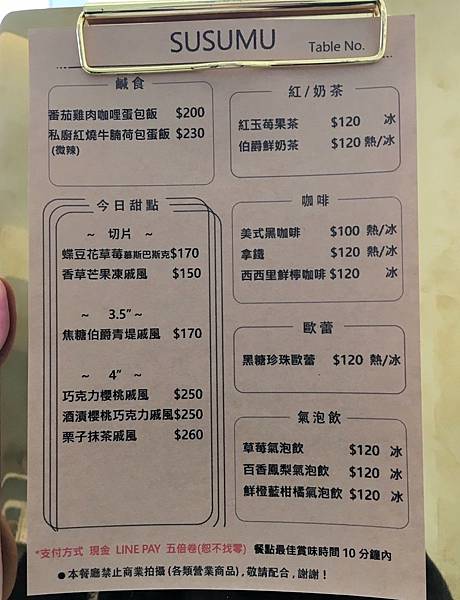 SUSUMU
Table No.
鹹食
番茄雞肉咖哩蛋包飯 $200
私廚紅燒牛腩荷包蛋飯 $230
(微辣)
今日甜點
～ 切片 ～
蝶豆花草莓慕斯巴斯克$170
香草芒果凍戚風 $150
～ 3.5”～
焦糖伯爵青堤戚風 $170
～ 4” ～
巧克力櫻桃戚風 $250
酒漬櫻桃巧克力戚風$250
栗子抹茶戚風 $260
紅/奶茶
紅玉莓果茶 $120 冰
伯爵鮮奶茶 $120 熱/冰
咖啡
美式黑咖啡 $100 熱/冰
拿鐵 $120 熱/冰
西西里鮮檸咖啡 $120 冰
歐蕾
黑糖珍珠歐蕾 $120 熱/冰
氣泡飲
草莓氣泡飲 $120 冰
百香鳳梨氣泡飲 $120 冰
鮮橙藍柑橘氣泡飲 $120 冰
*支付方式 現金 LINE PAY 五倍卷(恕不找零) 餐點最佳賞味時間10分鐘內
● 本餐廳禁止商業拍攝(各類營業商品),敬請配合,謝謝!